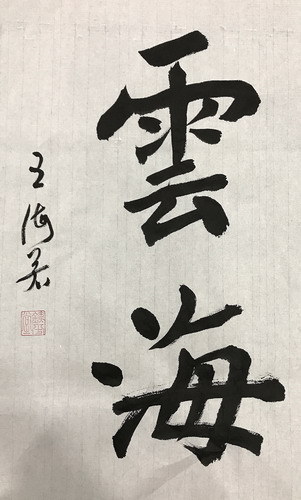 雲海
王海若